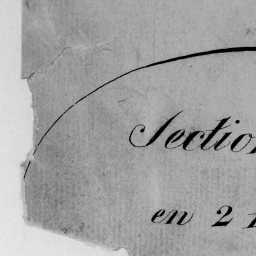 Section
en 2